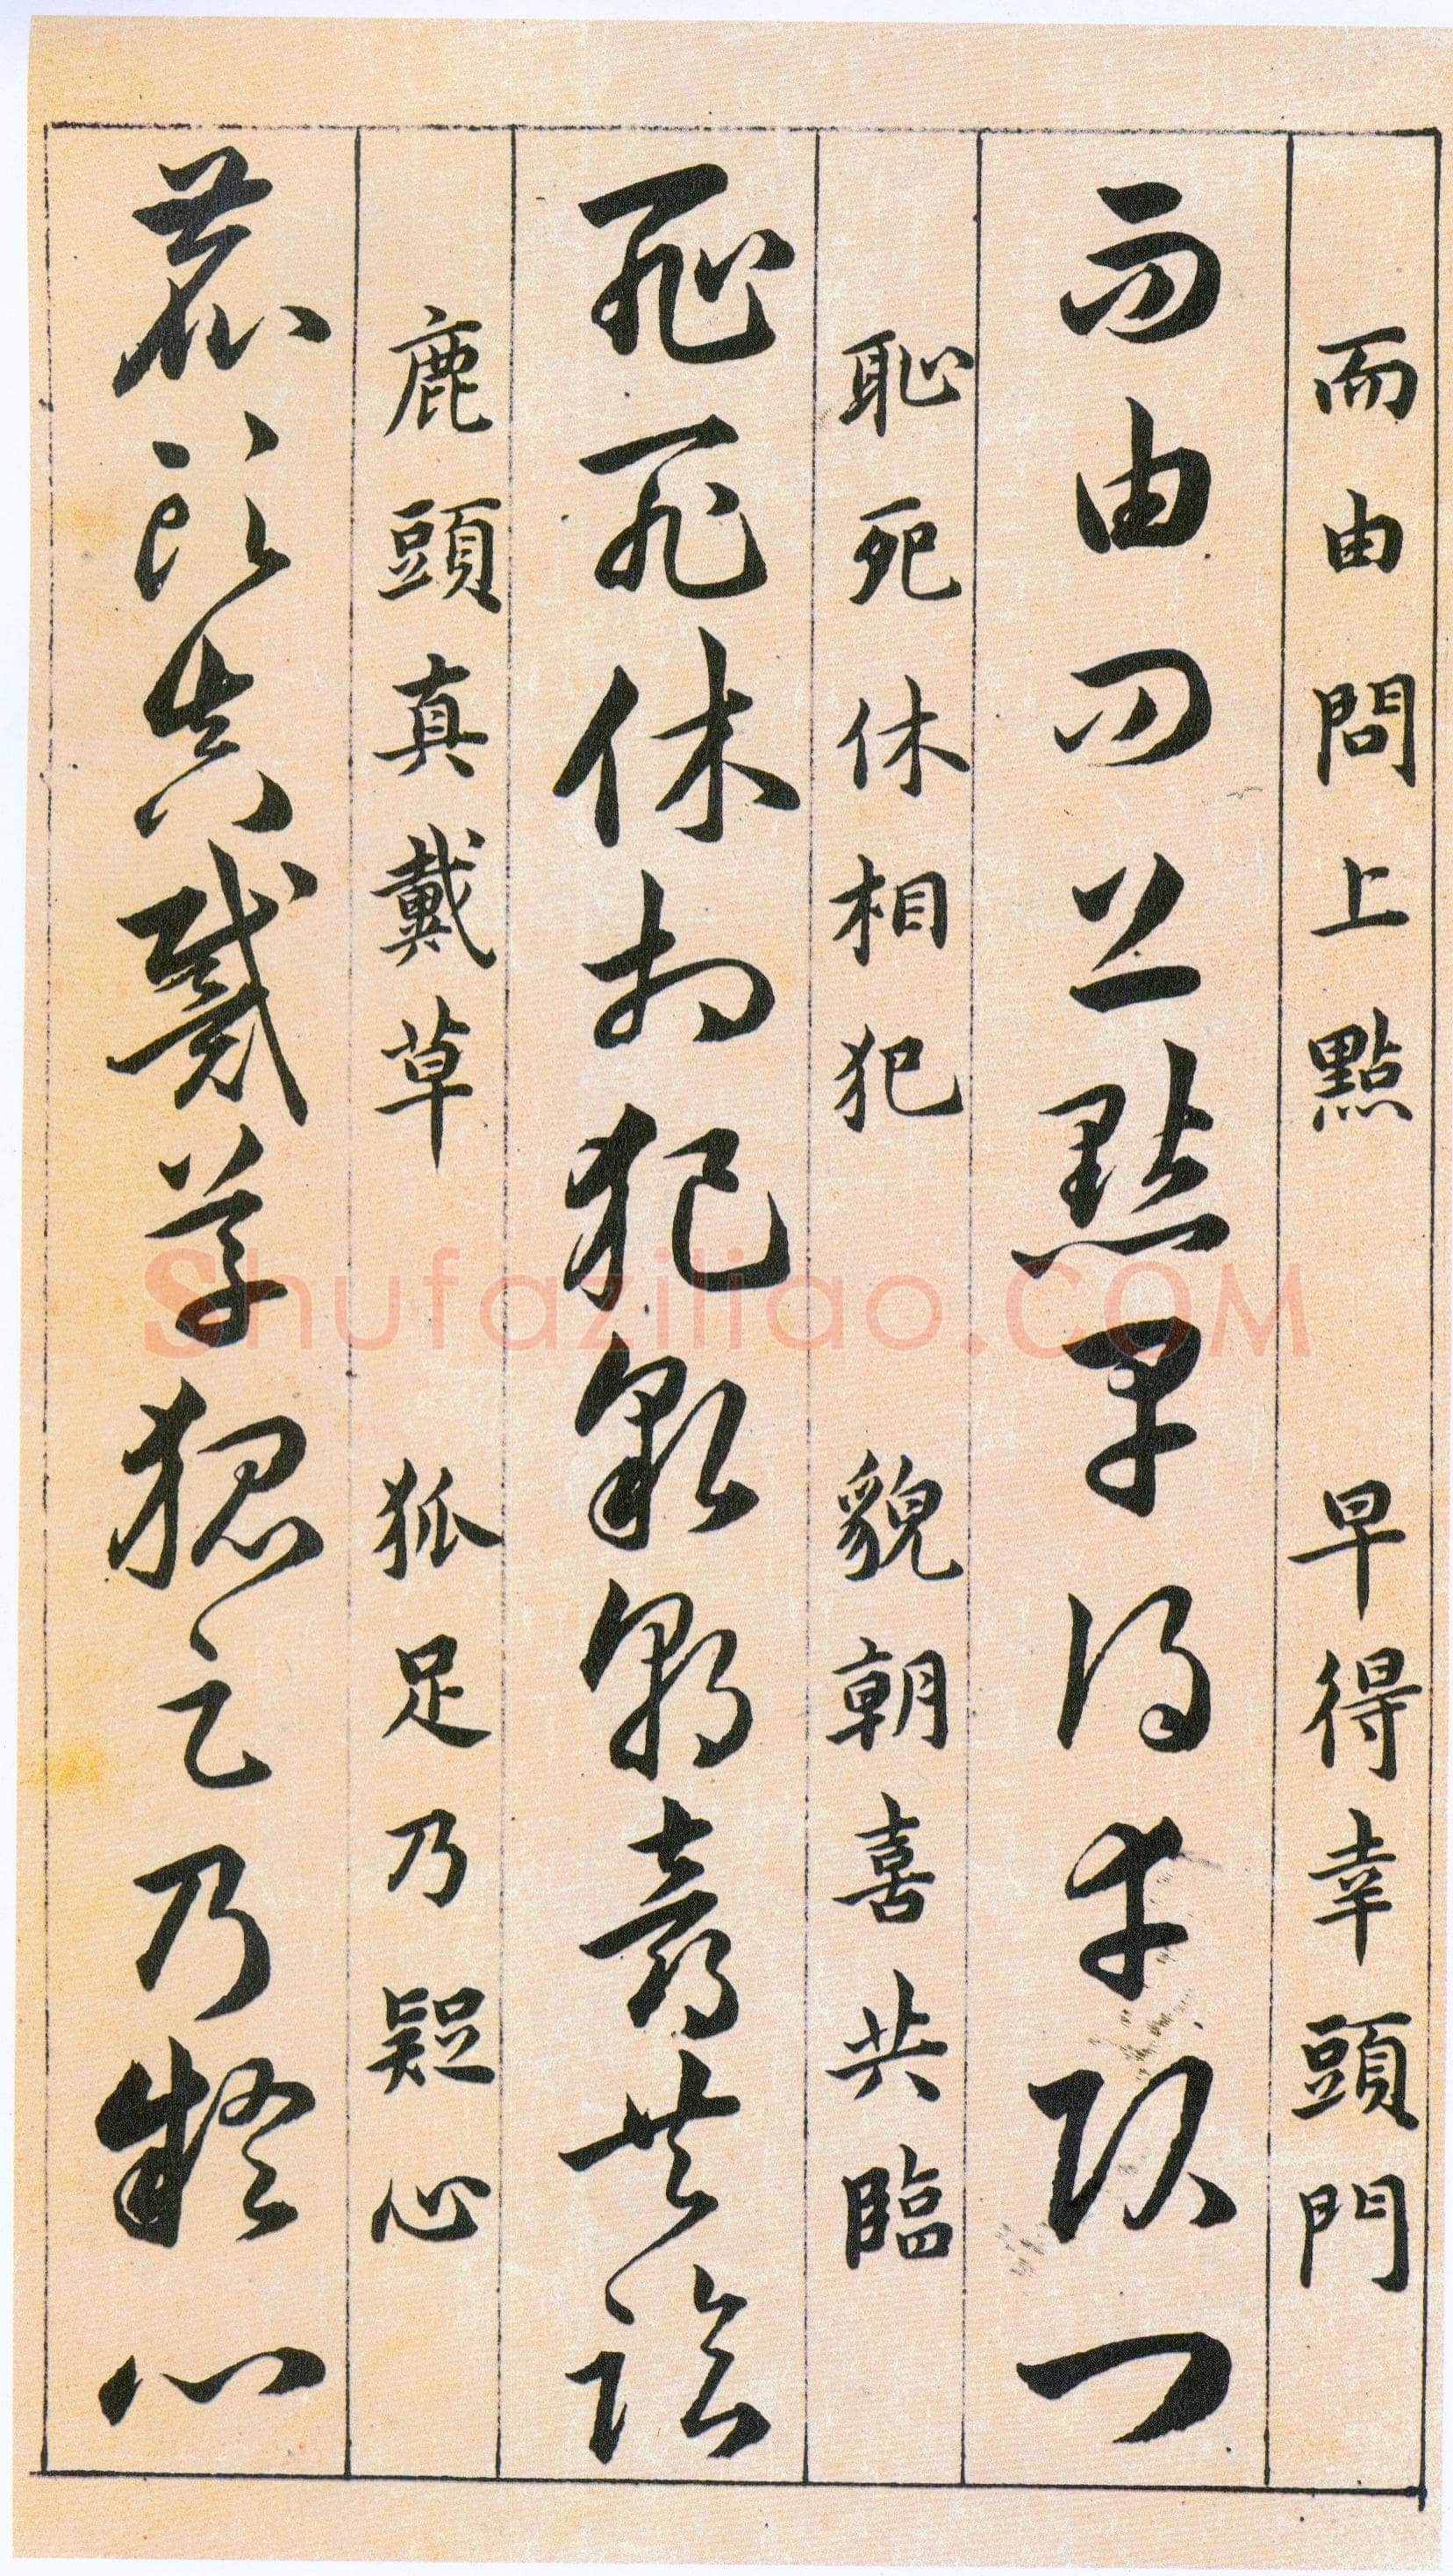 而由問上點 早得幸頭門
而由問上點早得幸頭門
恥死休相犯 貌朝喜共臨
恥死休相犯貌朝喜共臨
鹿頭真戴草 狐足乃疑心
鹿頭真戴草狐足乃疑心
Shufaziliao.COM